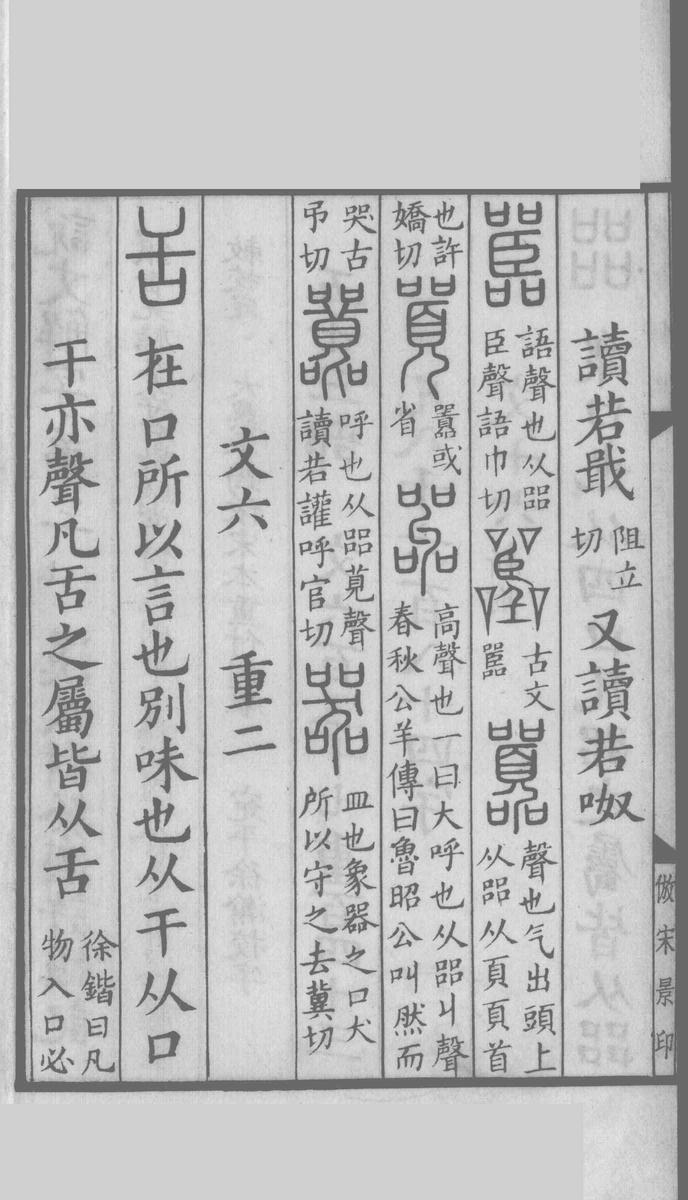 讀若戢阻立切又讀若呶
嚚語聲也从㗊臣聲語巾切古文嚚囂聲也气出頭上从㗊从頁頁首
也許嬌切囂或省嘂高聲也一曰大呼也从㗊丩聲春秋公羊傳曰魯昭公叫然而
哭古弔切呼也从㗊萈聲讀若讙呼官切器皿也象器之口犬所以守之去冀切
文六 重二
舌在口所以言也別味也从干从口
干亦聲凡舌之屬皆从舌徐鍇曰凡物入口必
倣宋景印